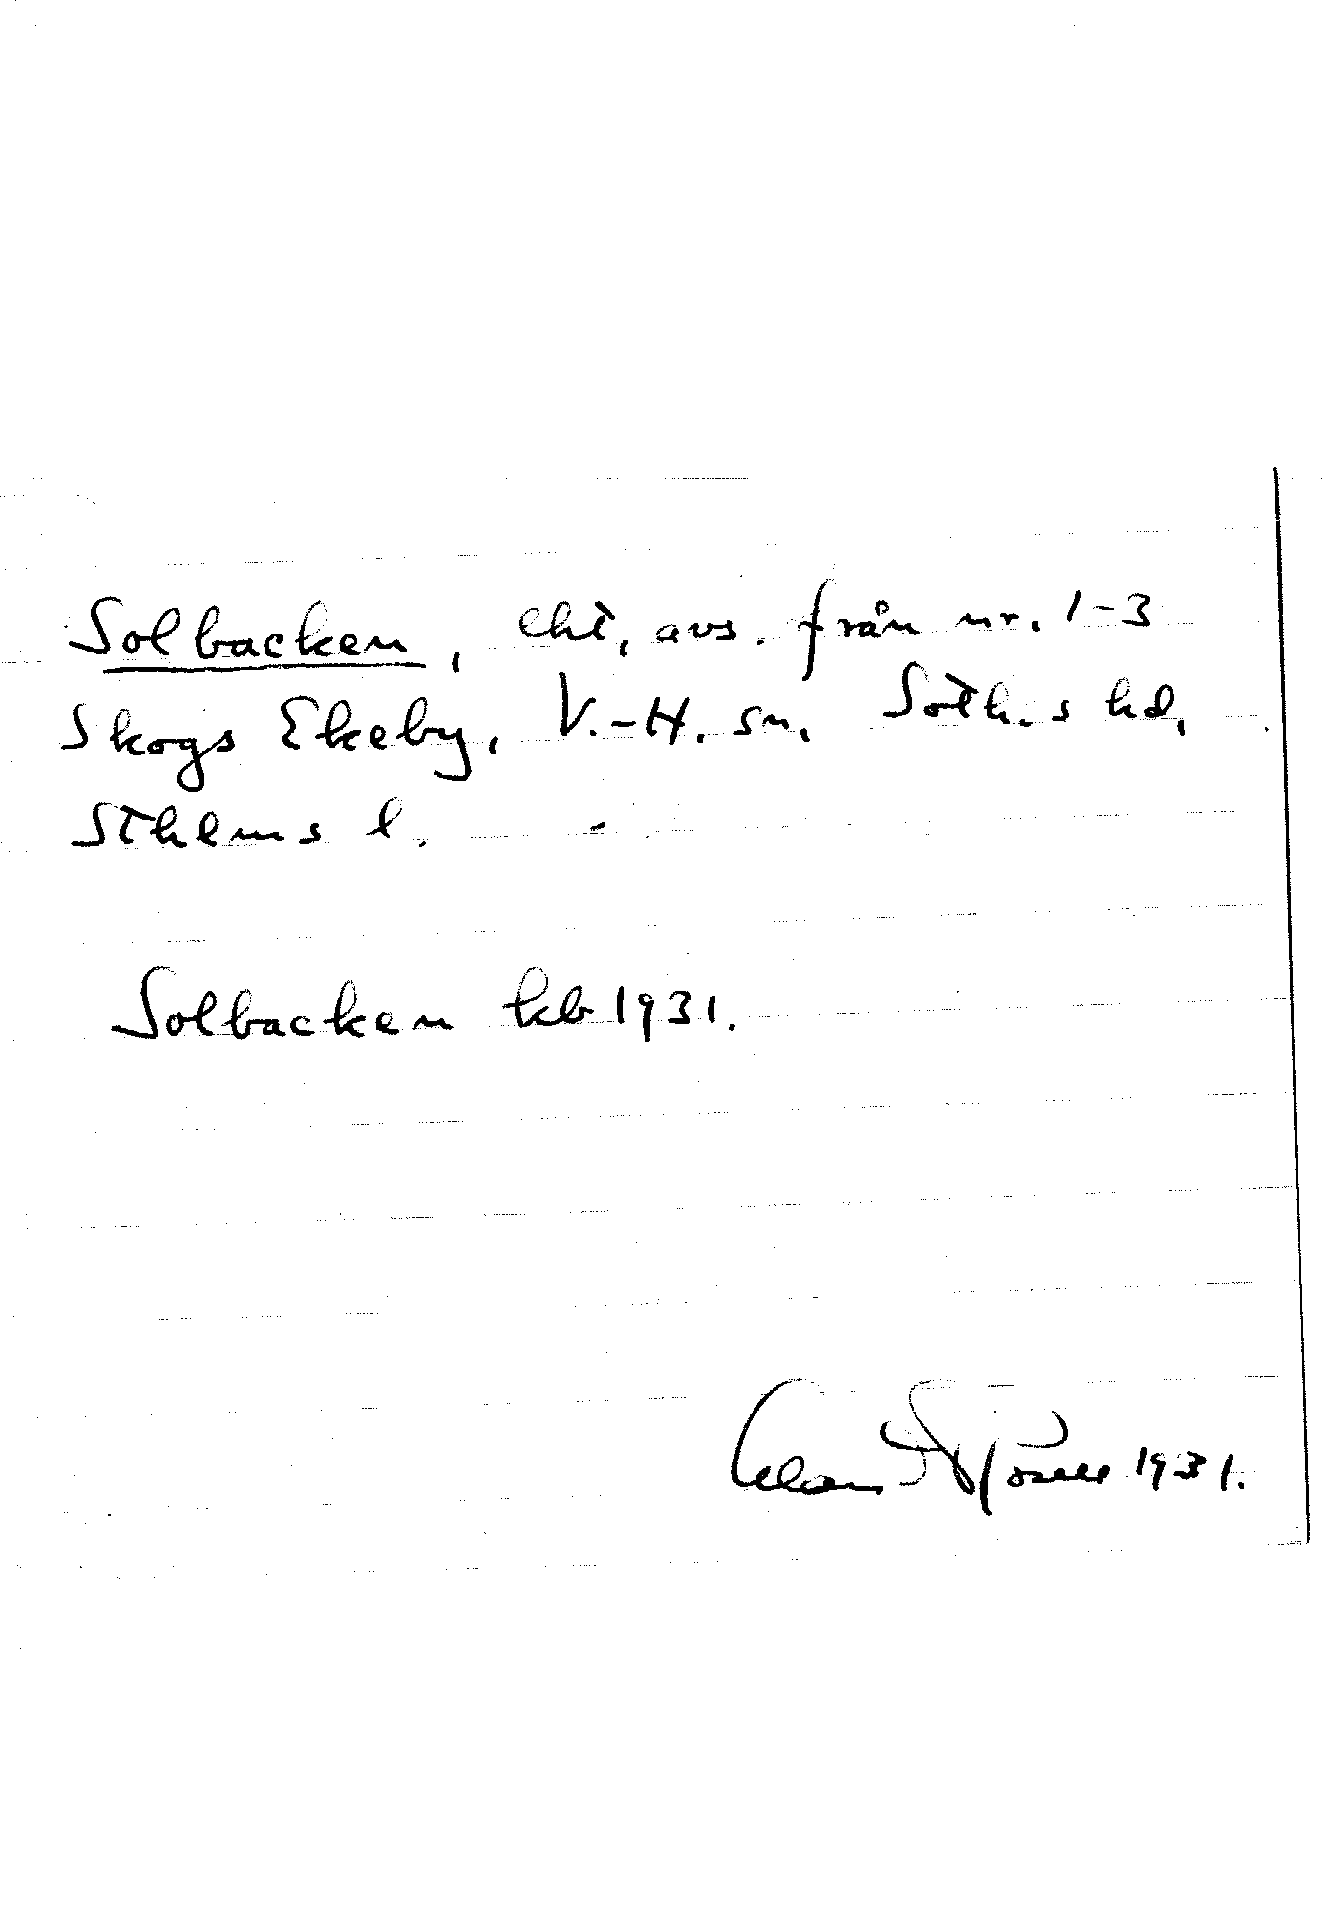 Solbacken, lht, avs. från nr. 1-3
Skogs Ekeby, V.-H. sn, Soth.s hd,
Sthlms l.
Solbacken kb 1931.
1931.